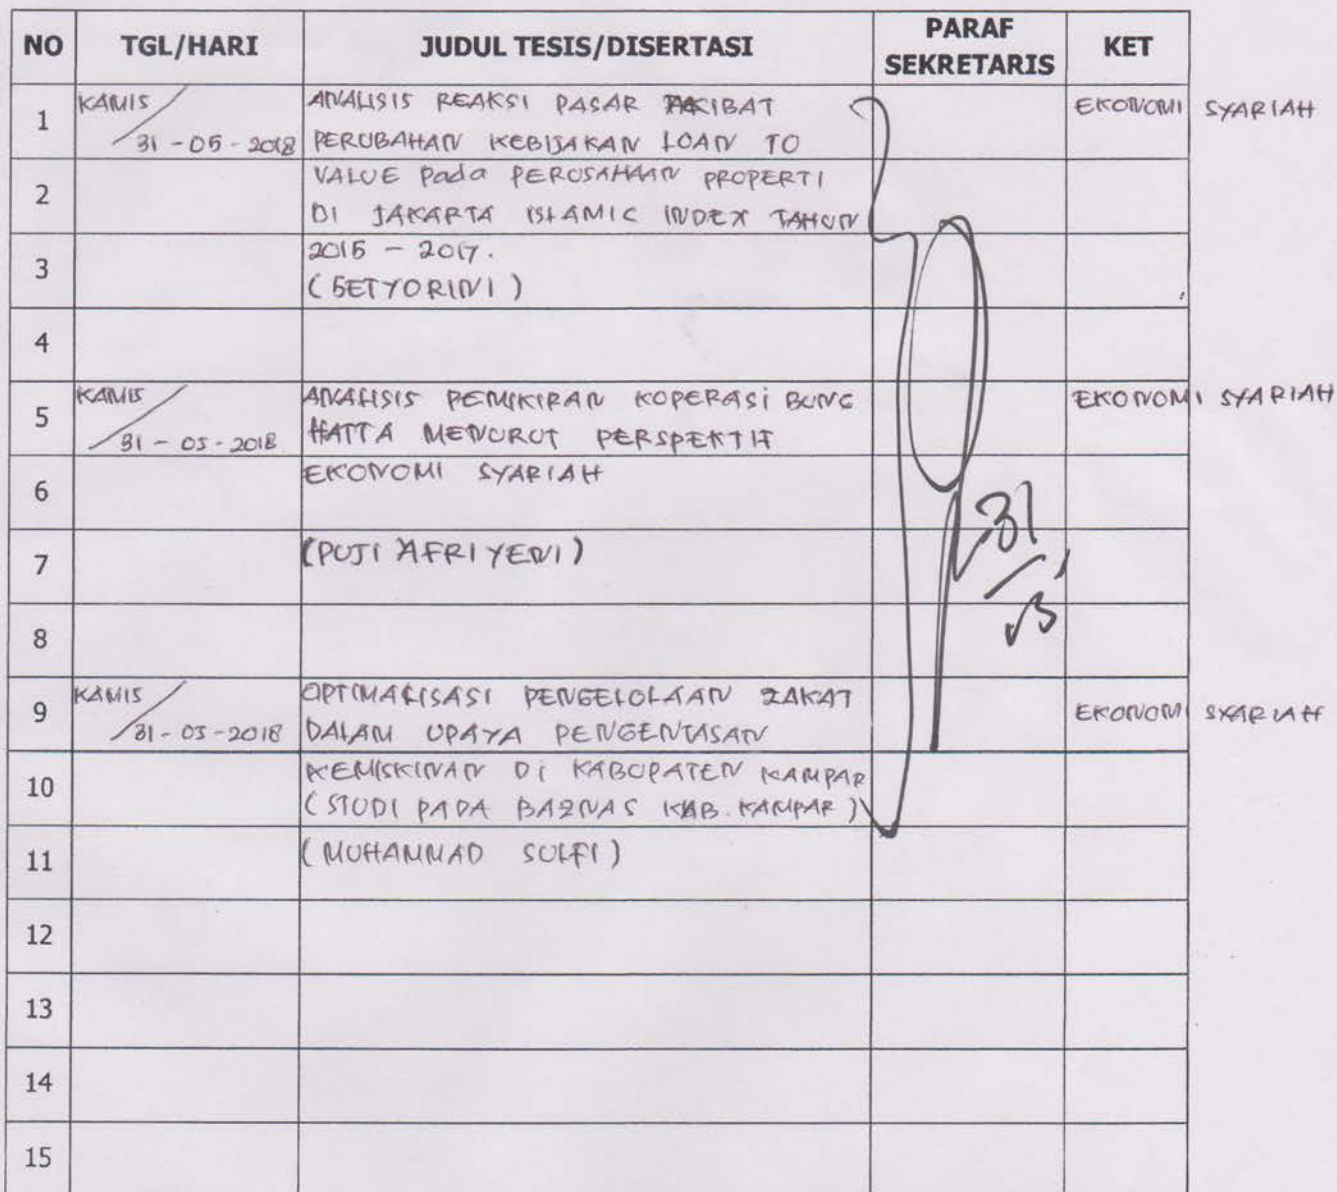 NO TGL/HARI JUDUL TESIS/DISERTASI PARAF SEKRETARIS KET
1 KAMIS / 31-05-2018 ANALISIS REAKSI PASAR AKIBAT EKONOMI SYARIAH
PERUBAHAN KEBIJAKAN LOAN TO
2 VALUE pada PERUSAHAAN PROPERTI
DI JAKARTA ISLAMIC INDEX TAHUN
3 2015 - 2017.
(SETYORINI)
4
5 KAMIS / 31-05-2018 ANALISIS PEMIKIRAN KOPERASI BUNG EKONOMI SYARIAH
HATTA MENURUT PERSPEKTIF
6 EKONOMI SYARIAH
7 (PUJI AFRIYENI)
31/5
8
9 KAMIS / 31-05-2018 OPTIMALISASI PENGELOLAAN ZAKAT EKONOMI SYARIAH
DALAM UPAYA PENGENTASAN
10 KEMISKINAN Di KABUPATEN KAMPAR
(STUDI PADA BAZNAS KAB. KAMPAR)
11 (MUHAMMAD SULFI)
12
13
14
15